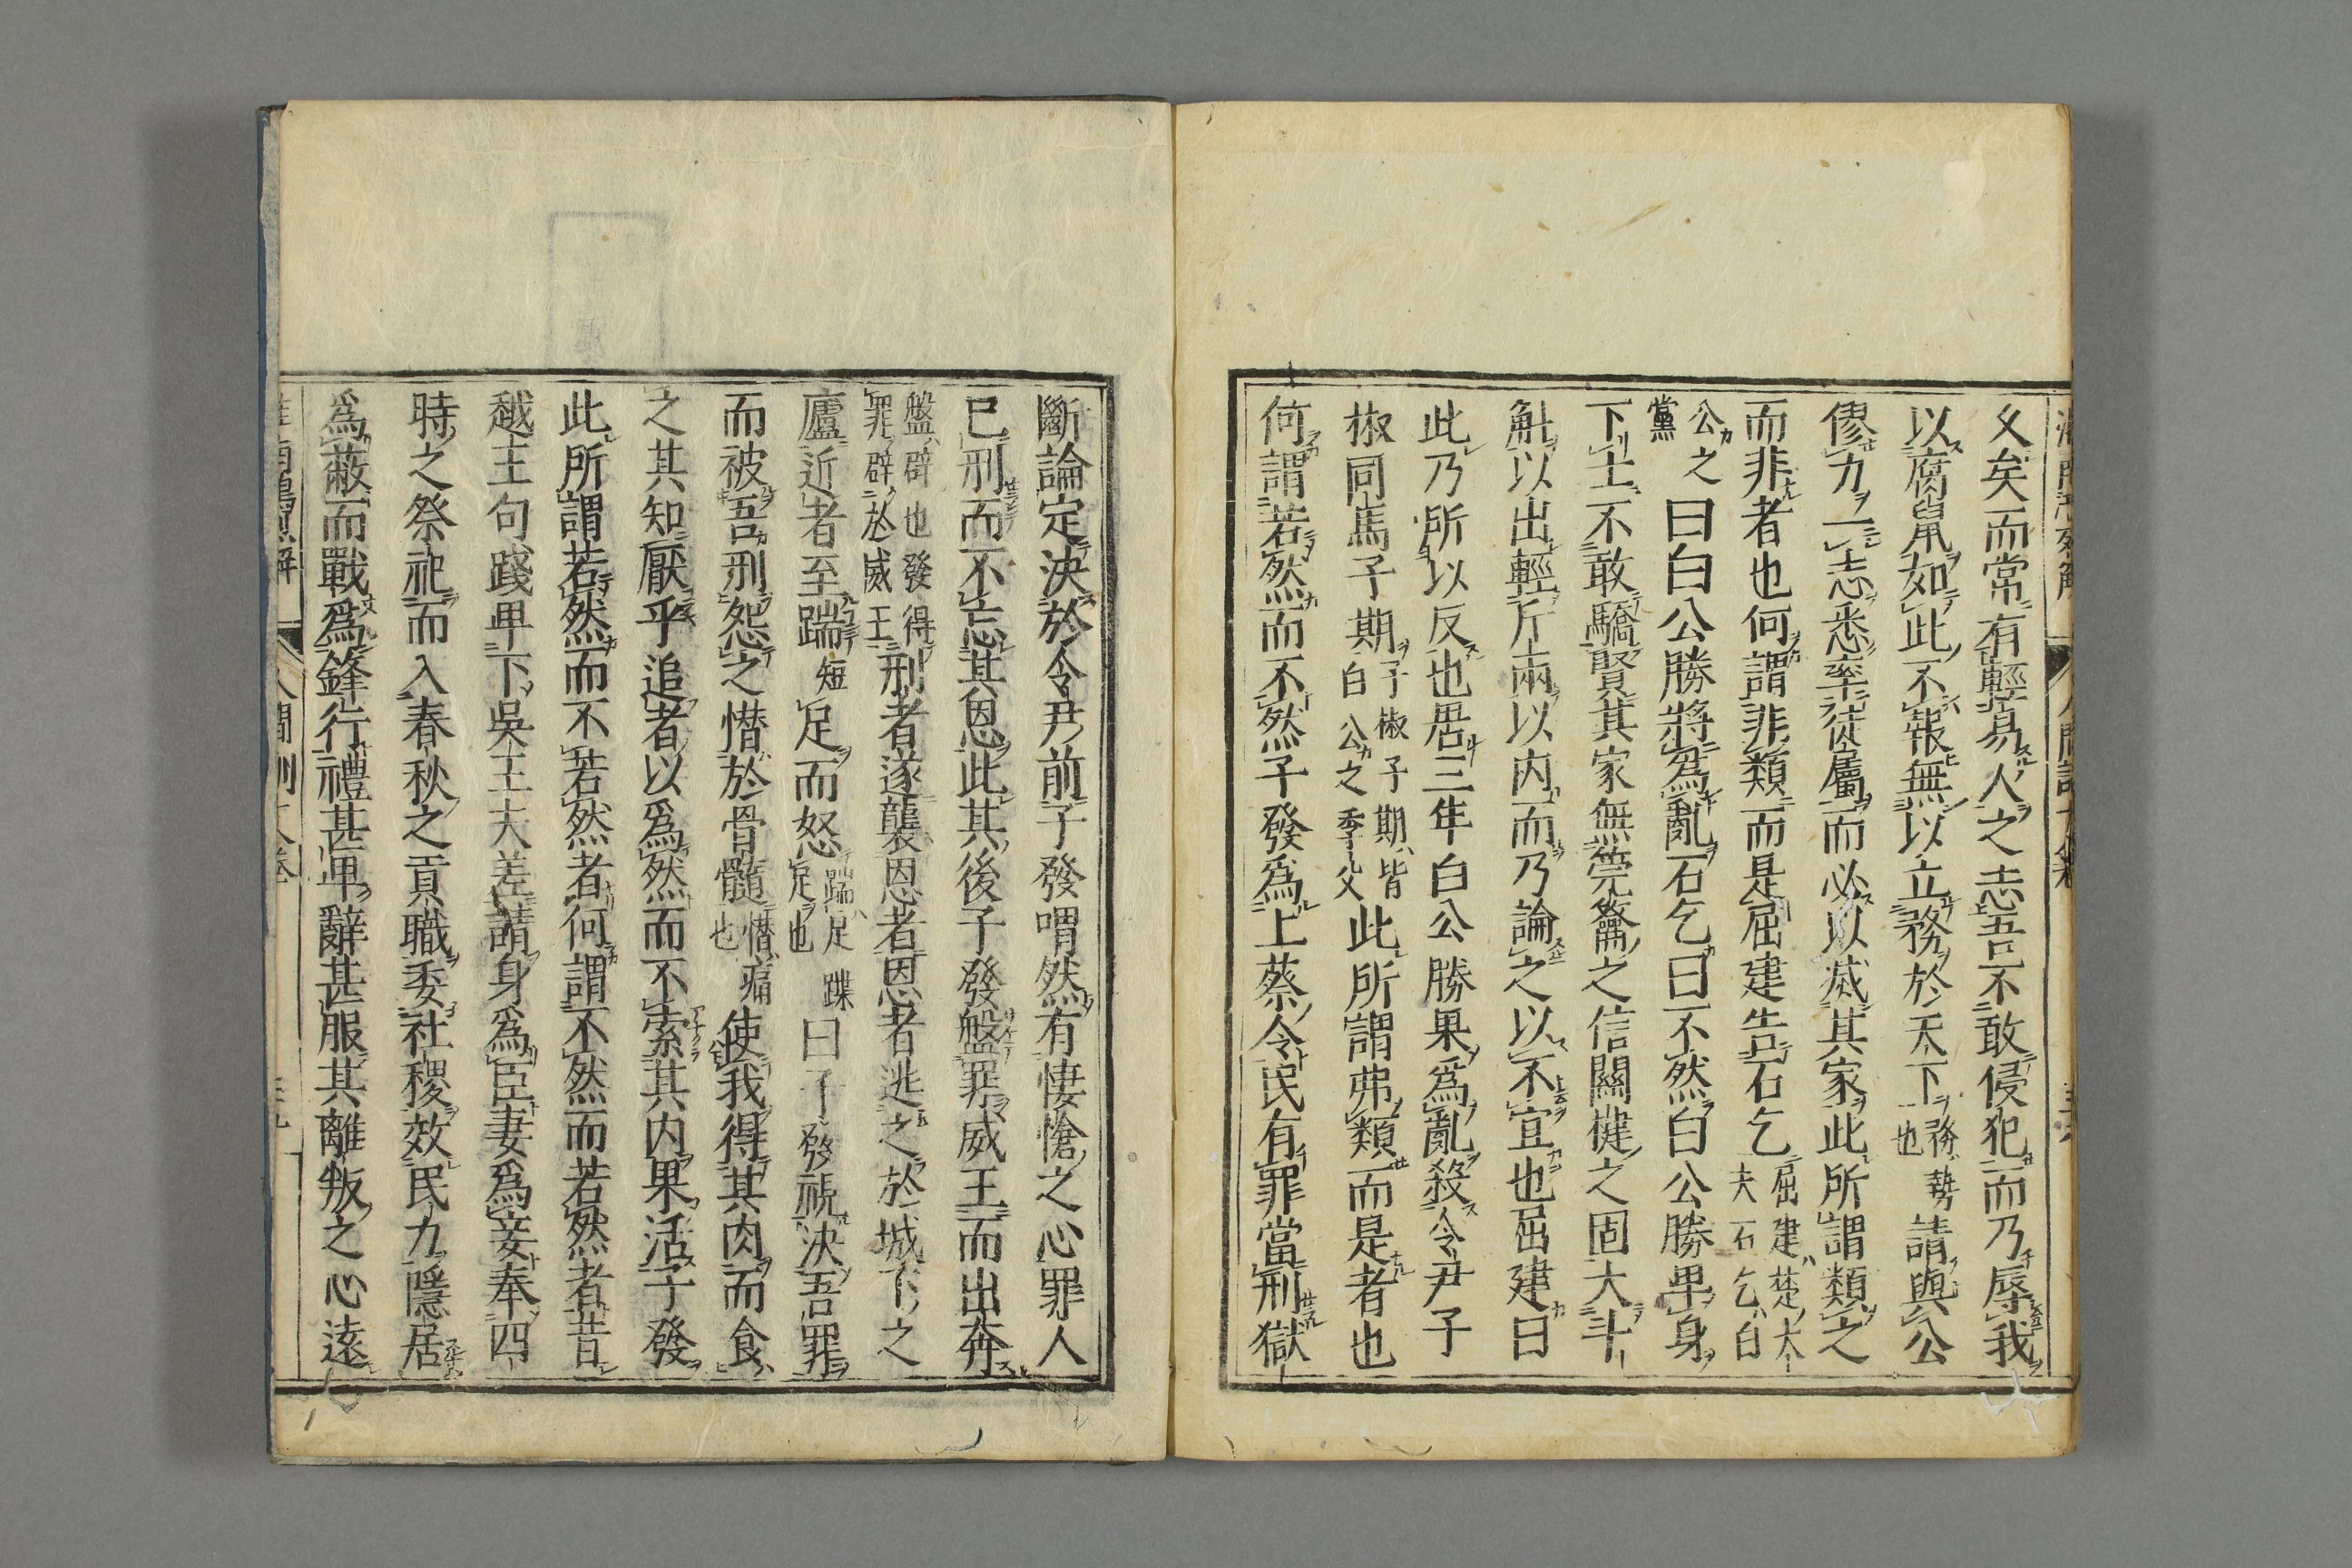 久矣而常有輕易人之志吾不敢侵犯而乃辱我
以腐鼠如此不報無以立務於天下務勢也請與公
僇力一志悉率徒屬而必以滅其家此所謂類之
而非者也何謂非類而是屈建告石乞屈建楚大夫石乞白
公之黨曰白公勝將爲亂石乞曰不然白公勝卑身
下士不敢驕賢其家無筦籥之信關楗之固大斗
斛以出輕斤兩以内而乃論之以不宜也屈建曰
此乃所以反也居三年白公勝果爲亂殺令尹子
椒司馬子期子椒子期皆白公之季父此所謂弗類而是者也
何謂若然而不然子發爲上蔡令民有罪當刑獄
斷論定決於令尹前子發喟然有悽愴之心罪人
已刑而不忘其恩此其後子發盤罪威王而出奔
盤辟也發得罪辟於威王刑者遂襲恩者恩者逃之於城下之
廬近者至踹短足而怒踹足蹀足也曰子發視決吾罪
而被吾刑怨之憯於骨髓憯痛也使我得其肉而食
之其知厭乎追者以爲然而不索其内果活子發
此所謂若然而不若然者何謂不然而若然者昔
越王句踐卑下吳王夫差請身爲臣妻爲妾奉四
時之祭祀而入春秋之貢職委社稷效民力隱居
爲蔽而戰爲鋒行禮甚卑辭甚服其離叛之心遠